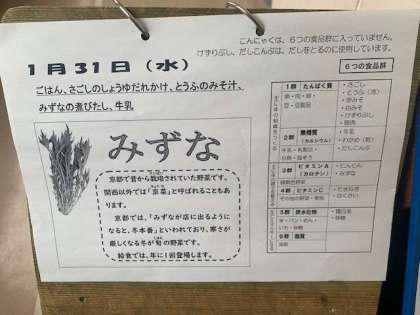 こんにゃくは、6つの食品群に入っていません。
けずりぶし、だしこんぶは、だしをとるのに使用しています。
1月31日(水)
ごはん、さごしのしょうゆだれかけ、とうふのみそ汁、
みずなの煮びたし、牛乳
みずな
京都で昔から栽培されていた野菜です。
関西以外では「京菜」と呼ばれることもあ
ります。
京都では、「みずなが店に出るように
なると、冬本番」といわれており、寒さが
厳しくなる冬が旬の野菜です。
給食では、年に1回登場します。
6つの食品群
1群 たんぱく質
魚・肉・卵・
豆・豆製品
・さごし
・とうふ(冷)
・赤みそ
・白みそ
・けずりぶし
2群 無機質
(カルシウム)
牛乳・乳製品
・牛乳
・わかめ(乾)
・だしこんぶ
3群 ビタミンA
(カロテン)
緑黄色野菜
・にんじん
・みずな
4群 ビタミンC
その他の野菜・果物
・たまねぎ
5群 炭水化物
米・パン・めん・
いも・砂糖
・精白米
・砂糖
6群 脂質
油脂